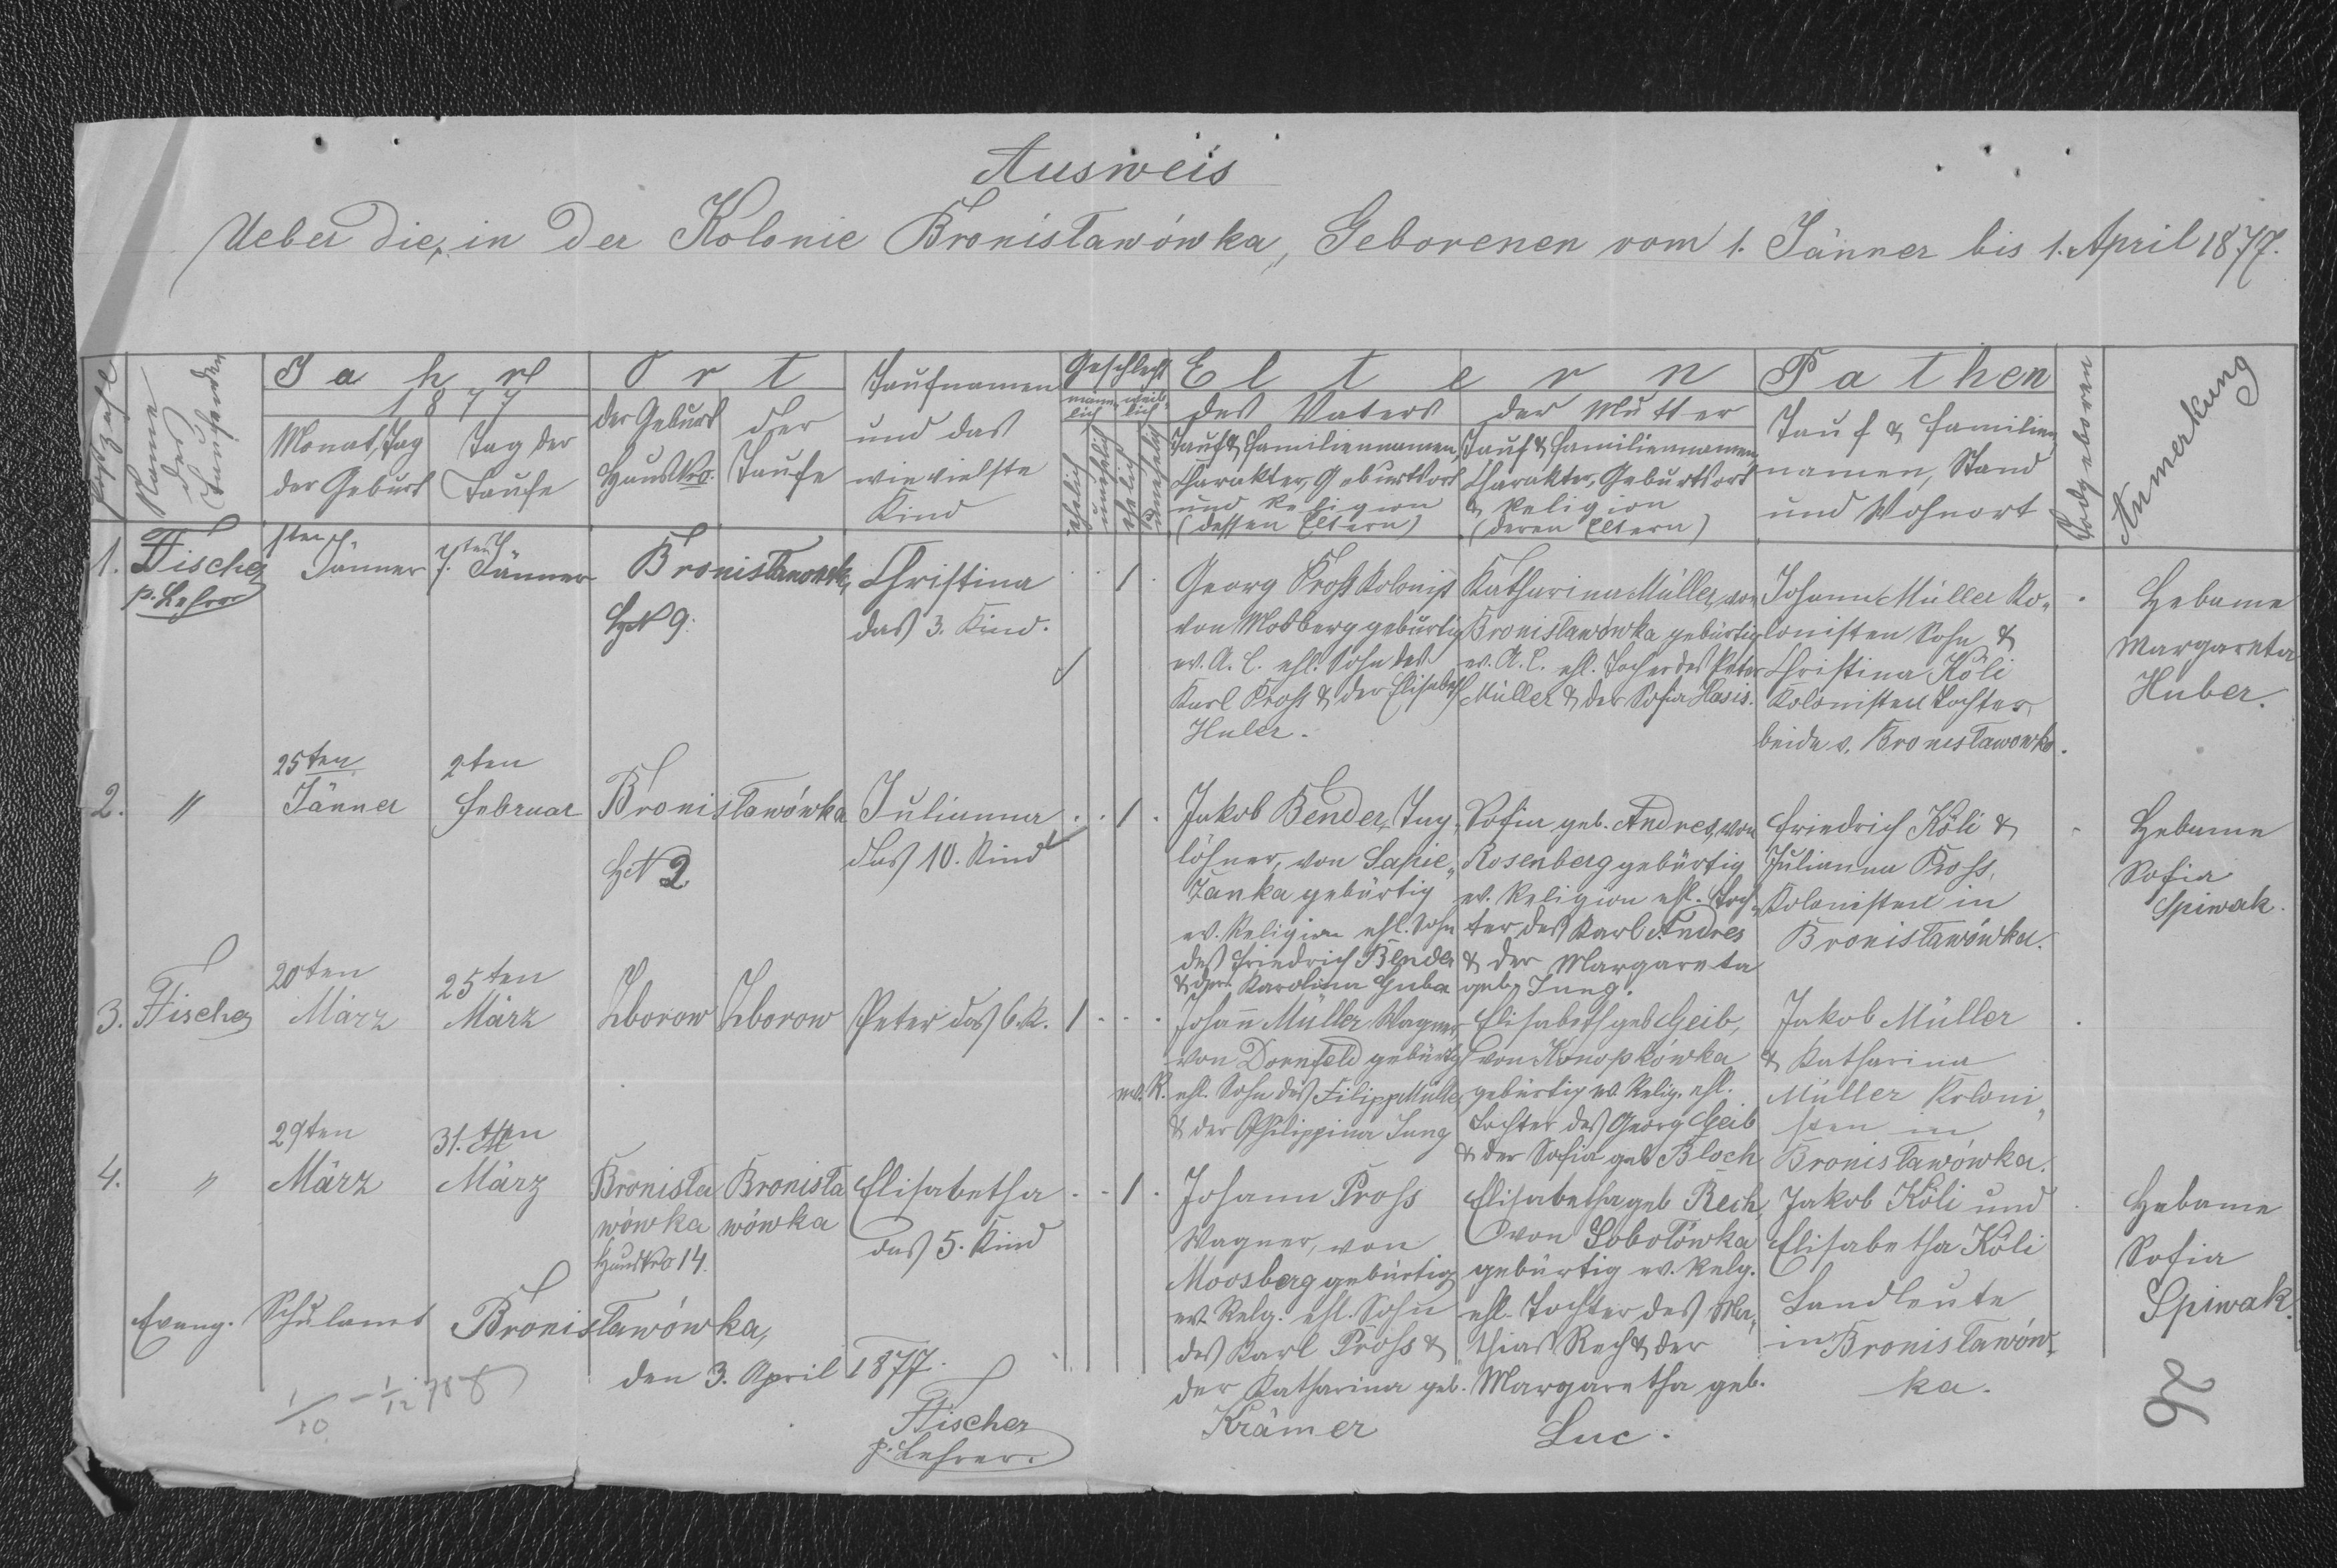 Ausweis
Ueber die, in der Kolonie Bronisławówka, Geborenen vom 1. Jänner bis 1. April 1877.
Name
Jahr
1877
Monat, Tag
der Geburt
Tag der
Taufe
Ort
der Geburt
Haus Nro.
der
Taufe
Taufnamen
und das
wie vielste
Kind
Geschlecht
männ-
lich
weib-
lich
ehelich
unehelich
ehelich
unehelich
Eltern
des Vaters
Tauf & Familiennamen,
Charakter, Geburtsort
und Religion
(dessen Eltern)
der Mutter
Tauf & Familiennamen,
Charakter, Geburtsort
& Religion
(deren Eltern)
Pathen
Tauf & Familien
namen, Stand
und Wohnort
Todgeboren
Anmerkung
1.
Fischer
p. Lehrer
1ten
Jänner
7ten
Jänner
Bronisławowk,
HN 9.
Christina
das 3. Kind.
1
Georg Pross Kolonist
von Mosberg gebürtig
ev. A. C. ehl. Sohn des
Karl Pross & der Elisabeth
Huler.
Katharina Müller, von
Bronisławówka gebürtig
ev. A. C. ehl. Tochter des Peter
Müller & der Sofia Hasis.
Johann Müller Ko-
lonisten Sohn &
Christina Köli
Kolonisten Tochter
beide v. Bronisławowka.
Hebame
Margareta
Huber.
2.
"
25ten
Jänner
2ten
Februar
Bronisławówka
HN 2
Julianna
das 10. Kind
1
Jakob Bender, Tag-
löhner, von Sapie-
żanka gebürtig
ev. Religion ehl. Sohn
des Friedrich Bender
& der Karolina Huber
Sofia geb. Andres, von
Rosenberg gebürtig
ev. Religion ehl. Toch-
ter des Karl Andres
& der Margareta
geb. Jung.
Friedrich Köli &
Julianna Pross,
Kolonisten in
Bronisławówka.
Hebame
Sofia
Spiwak.
3.
Fischer
20ten
März
25ten
März
Zborow
Zborow
Peter das 6. K.
1
Johann Müller Wagner
von Dornfeld gebürtig
ev. R. ehl. Sohn des Filipp Müller
& der Philippina Jung
Elisabeth geb Geib,
von Konopkówka
gebürtig ev. Relig. ehl.
Tochter des Georg Geib
& der Sofia geb Bloch
Jakob Müller
& Katharina
Müller Koloni-
sten in
Bronisławówka.
4.
"
29ten
März
31. ten
März
Bronisła
wówka
Haus Nro 14.
Bronisła
wówka
Elisabetha
das 5. Kind
1
Johann Pross
Wagner, von
Moosberg gebürtig
ev. Relg. ehl. Sohn
des Karl Pross &
der Katharina geb.
Krämer
Elisabetha geb Rech,
von Sobolówka
gebürtig ev. Relg.
ehl. Tochter des Ma-
thias Rech & der
Margaretha geb.
Luc.
Jakob Köli und
Elisabetha Köli
Landleute
in Bronisławów-
ka.
Hebame
Sofia
Spiwak.
Evang. Schulamt Bronisławówka,
den 3. April 1877.
Fischer
p. Lehrer.